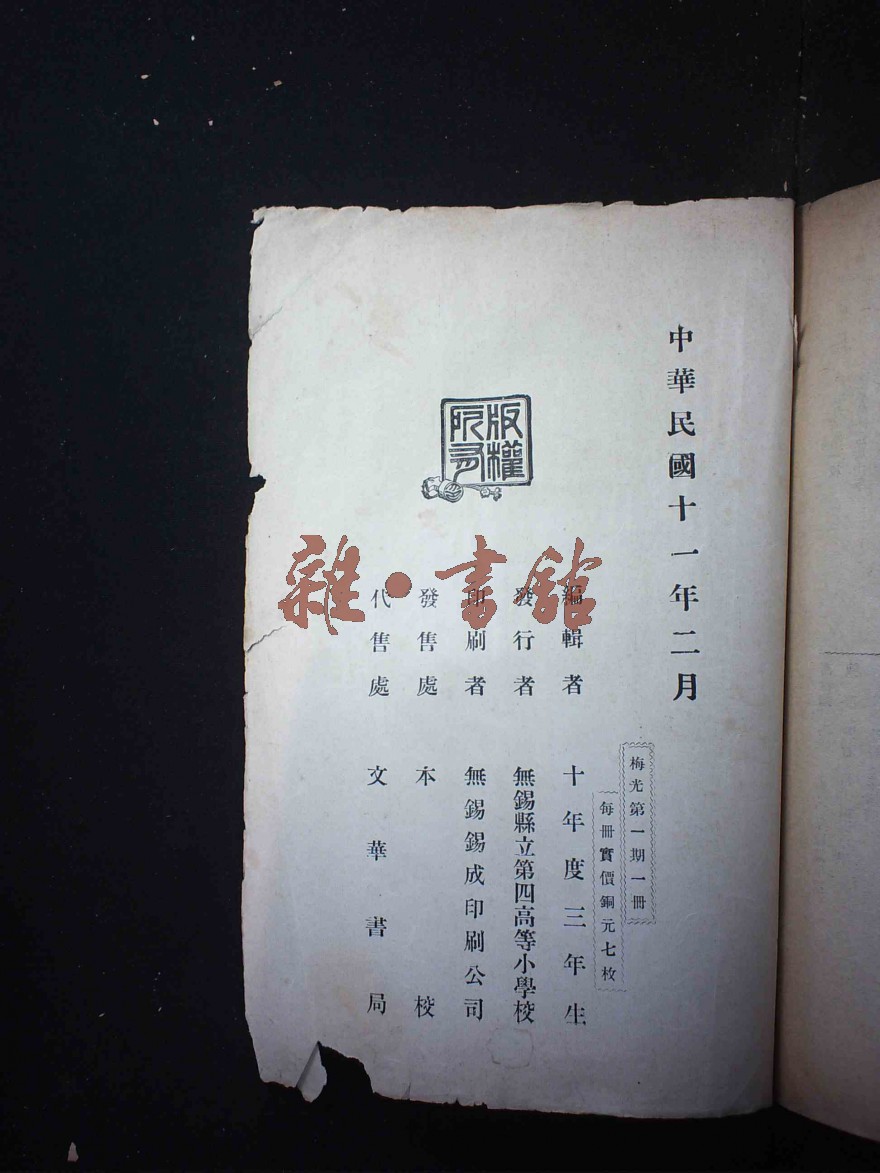 中華民國十一年二月
梅光第一期一冊
每冊實價銅元七枚
編輯者 十年度三年生
發行者 無錫縣立第四高等小學校
印刷者 無錫錫成印刷公司
發售處 本校
代售處 文華書局
版權所有
雜·書館